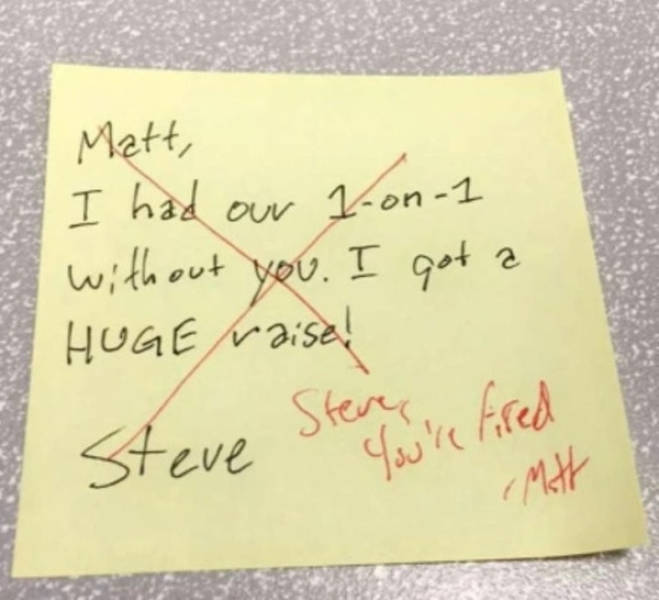 Matt,
I had our 1-on-1
without you. I got a
HUGE raise!
Steve
Steve,
You're fired
-Matt